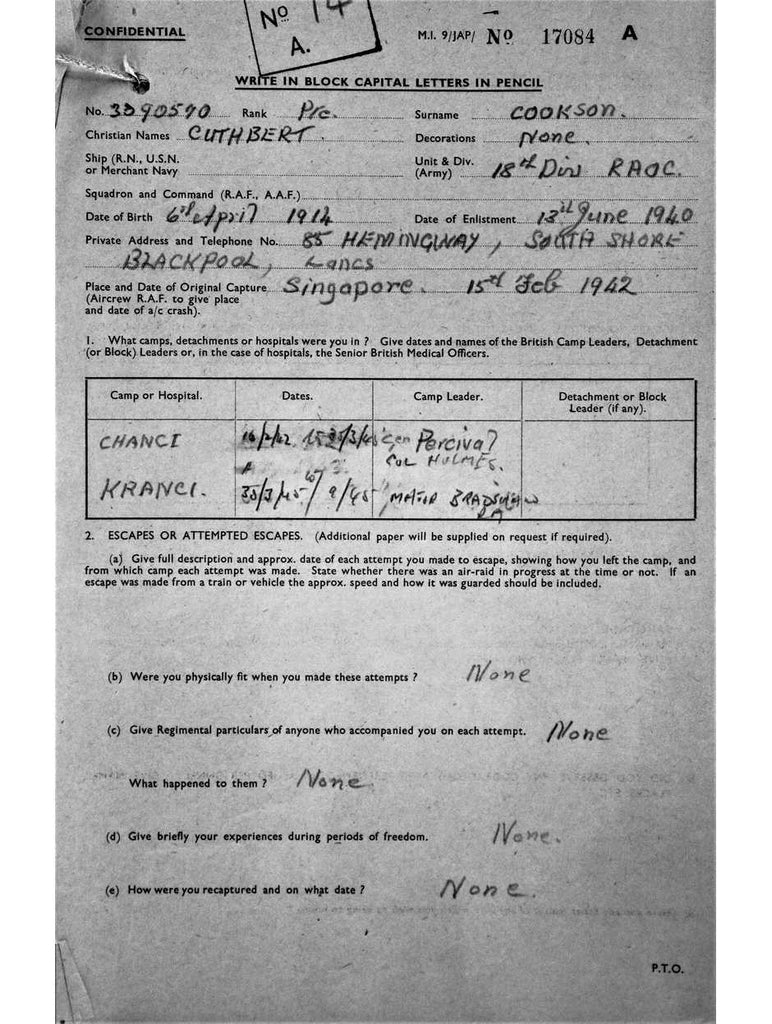 No 14
A.
CONFIDENTIAL
M.I. 9/JAP/ No 17084 A
WRITE IN BLOCK CAPITAL LETTERS IN PENCIL
No. 3390590 Rank Pte. Surname COOKSON.
Christian Names CUTHBERT. Decorations None.
Ship (R.N., U.S.N.
or Merchant Navy
Unit & Div.
(Army) 18th Div RAOC.
Squadron and Command (R.A.F., A.A.F.)
Date of Birth 6th April 1914 Date of Enlistment 13th June 1940
Private Address and Telephone No. 85 HEMINGWAY, SOUTH SHORE
BLACKPOOL, Lancs
Place and Date of Original Capture Singapore. 15th Feb 1942
(Aircrew R.A.F. to give place
and date of a/c crash).
1. What camps, detachments or hospitals were you in ? Give dates and names of the British Camp Leaders, Detachment
(or Block) Leaders or, in the case of hospitals, the Senior British Medical Officers.
Camp or Hospital. Dates. Camp Leader. Detachment or Block
Leader (if any).
CHANGI Gen Percival
COL HOLMES.
KRANGI. 9/45 MAJOR BRADSHAW
2. ESCAPES OR ATTEMPTED ESCAPES. (Additional paper will be supplied on request if required).
(a) Give full description and approx. date of each attempt you made to escape, showing how you left the camp, and
from which camp each attempt was made. State whether there was an air-raid in progress at the time or not. If an
escape was made from a train or vehicle the approx. speed and how it was guarded should be included.
(b) Were you physically fit when you made these attempts ? None
(c) Give Regimental particulars of anyone who accompanied you on each attempt. None
What happened to them ? None
(d) Give briefly your experiences during periods of freedom. None.
(e) How were you recaptured and on what date ? None.
P.T.O.